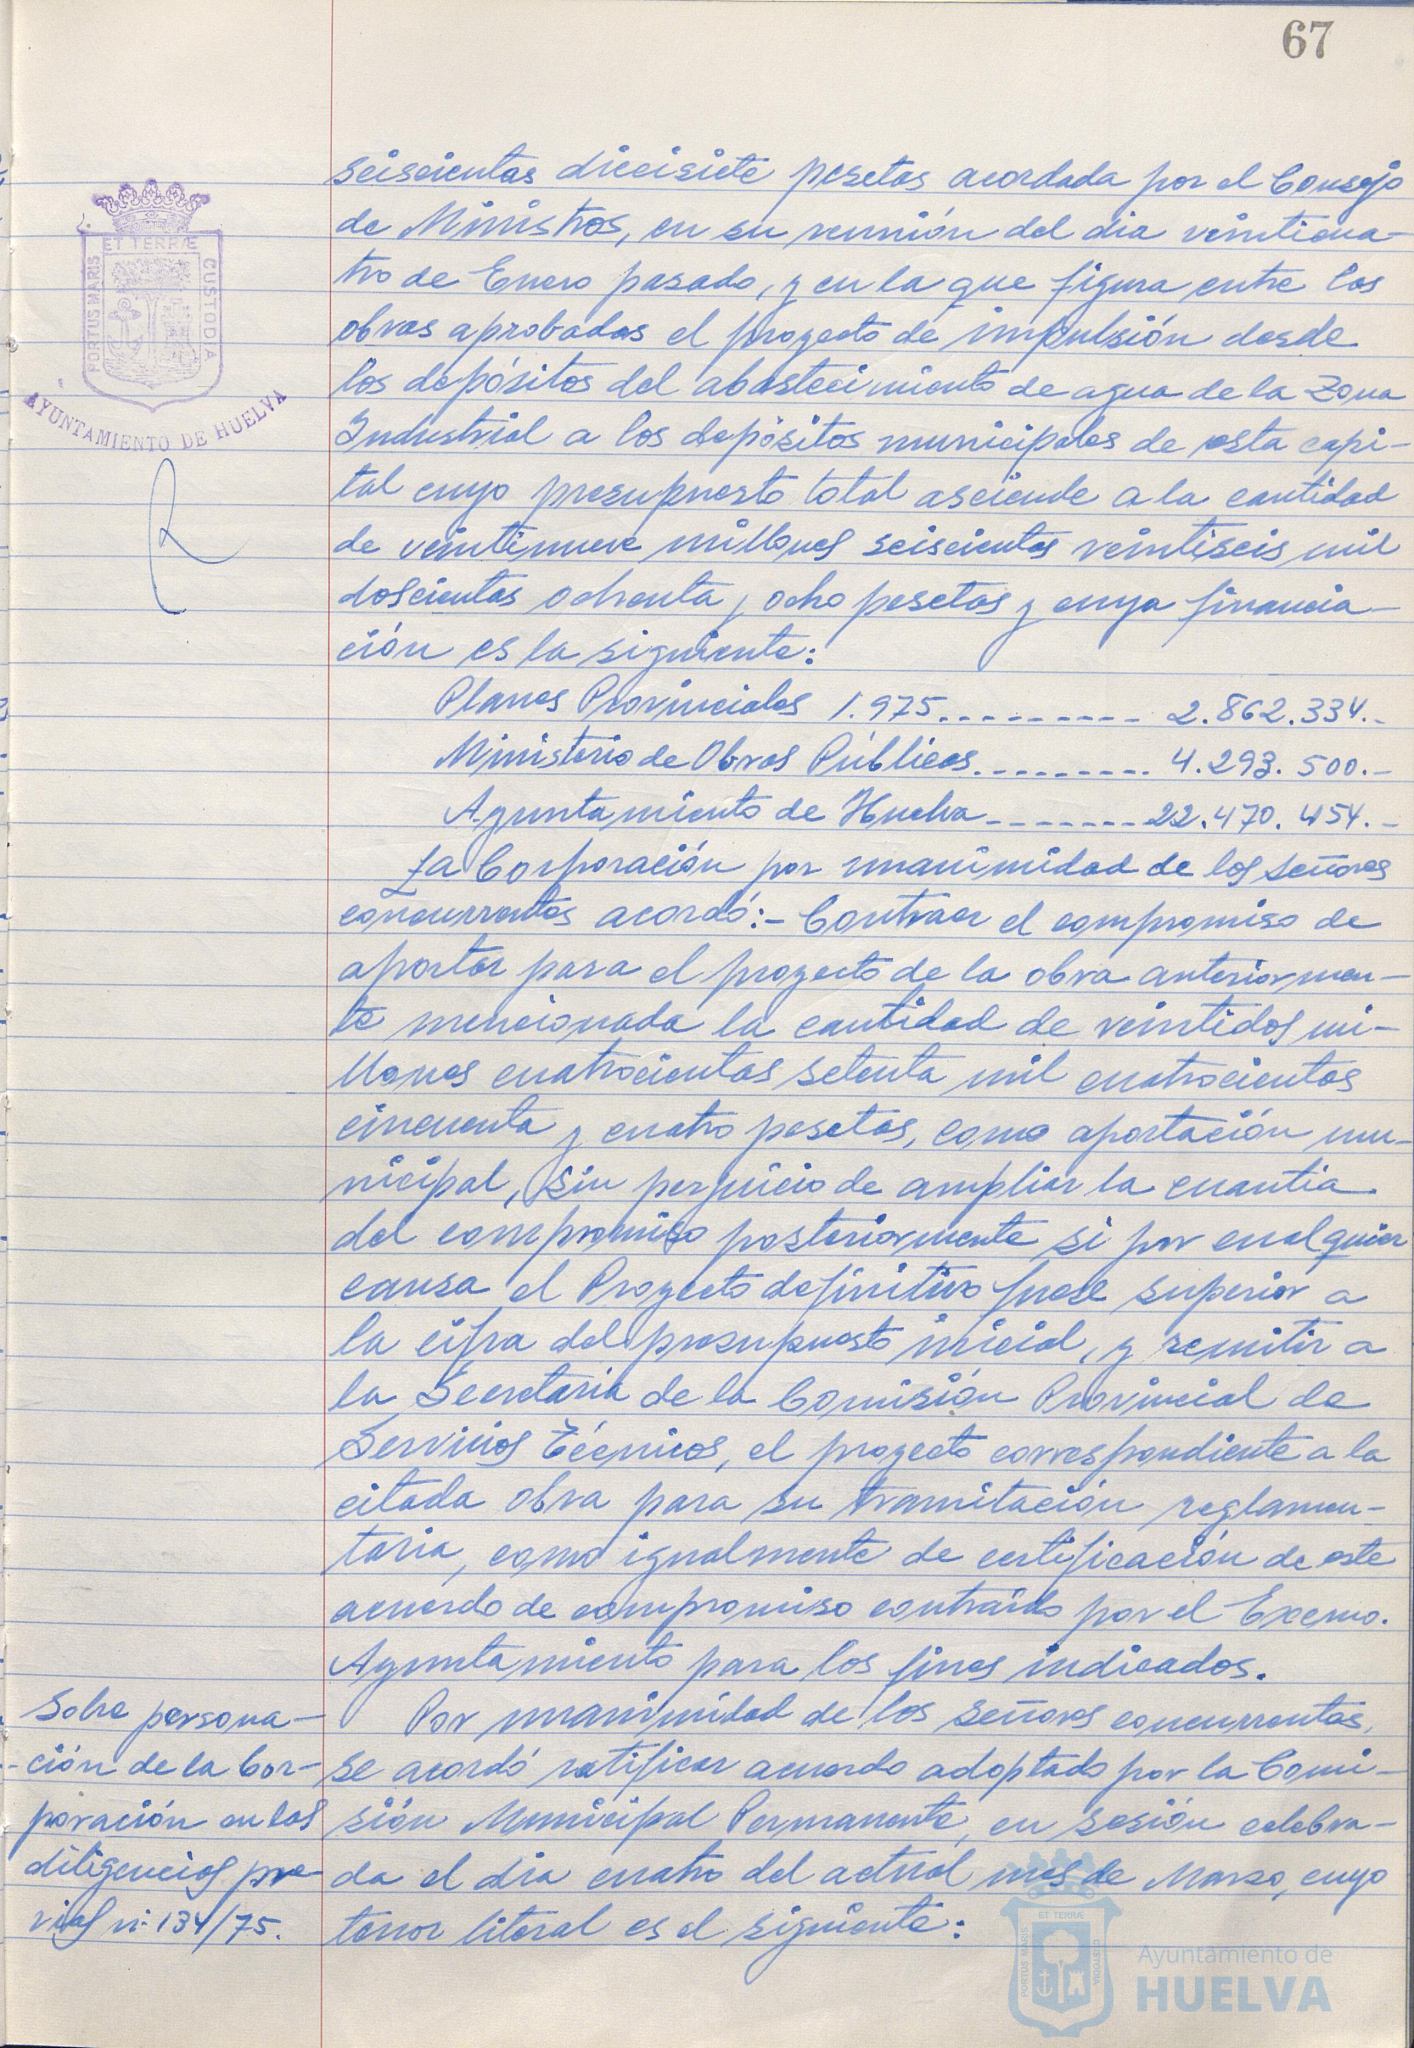 67
seiscientas diecisiete pesetas acordada por el Consejo
de Ministros, en su reunión del dia veinticua-
tro de Enero pasado, y en la que figura entre las
obras aprobadas el proyecto de impulsión desde
los depósitos del abastecimiento de agua de la Zona
Industrial a los depósitos municipales de esta capi-
tal cuyo presupuesto total asciende a la cantidad
de veintinueve millones seiscientas veintiseis mil
doscientas ochenta y ocho pesetas y cuya financia-
ción es la siguiente:
Planes Provinciales 1.975.......... 2.862.334.-
Ministerio de Obras Públicas.......... 4.293.500.-
Ayuntamiento de Huelva-------22.470.454.-
La Corporación por unanimidad de los señores
concurrentes acordó:- Contraer el compromiso de
aportar para el proyecto de la obra anteriormen-
te mencionada la cantidad de veintidos mi-
llones cuatrocientas setenta mil cuatrocientas
cincuenta y cuatro pesetas, como aportación mu-
nicipal, sin perjuicio de ampliar la cuantia
del compromiso posteriormente si por cualquier
causa el Proyecto definitivo fuese superior a
la cifra del presupuesto inicial, y remitir a
la Secretaria de la Comisión Provincial de
Servicios Técnicos, el proyecto correspondiente a la
citada obra para su tramitación reglamen-
taria, como igualmente de certificación de este
acuerdo de compromiso contraído por el Excmo.
Ayuntamiento para los fines indicados.
Por unanimidad de los señores concurrentes,
se acordó ratificar acuerdo adoptado por la Comi-
sión Municipal Permanente, en sesión celebra-
da el dia cuatro del actual mes de Marzo, cuyo
tenor literal es el siguiente:
Sobre persona-
ción de la Cor-
poración en las
diligencias pre-
vias n- 134/75.
PORTUS MARIS
ET TERRÆ
CUSTODIA
AYUNTAMIENTO DE HUELVA
PORTUS MARIS
ET TERRÆ
CUSTODIA
Ayuntamiento de
HUELVA